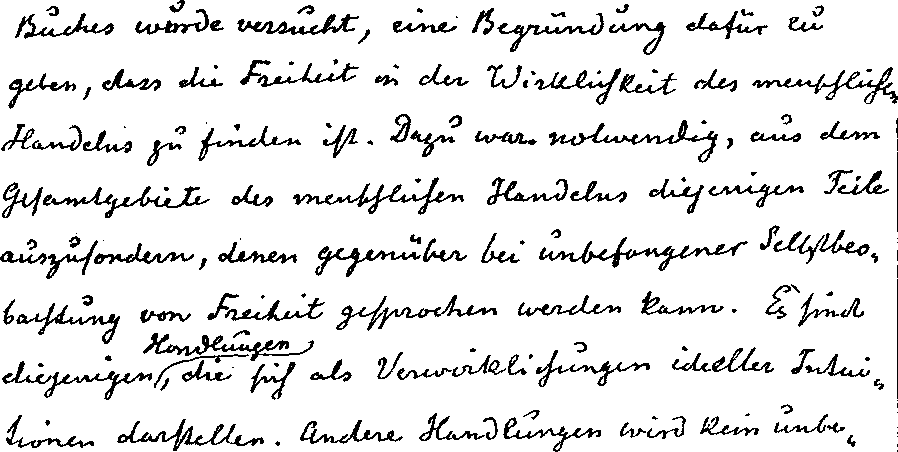 Buches wurde versucht, eine Begründung dafür zu
geben, dass die Freiheit in der Wirklichkeit des menschlichen
Handelns zu finden ist. Dazu war notwendig, aus dem
Gesamtgebiete des menschlichen Handelns diejenigen Teile
auszusondern, denen gegenüber bei unbefangener Selbstbeo-
bachtung von Freiheit gesprochen werden kann. Es sind
Handlungen
diejenigen, die sich als Verwirklichungen ideeller Intui-
tionen darstellen. Andere Handlungen wird kein unbe-